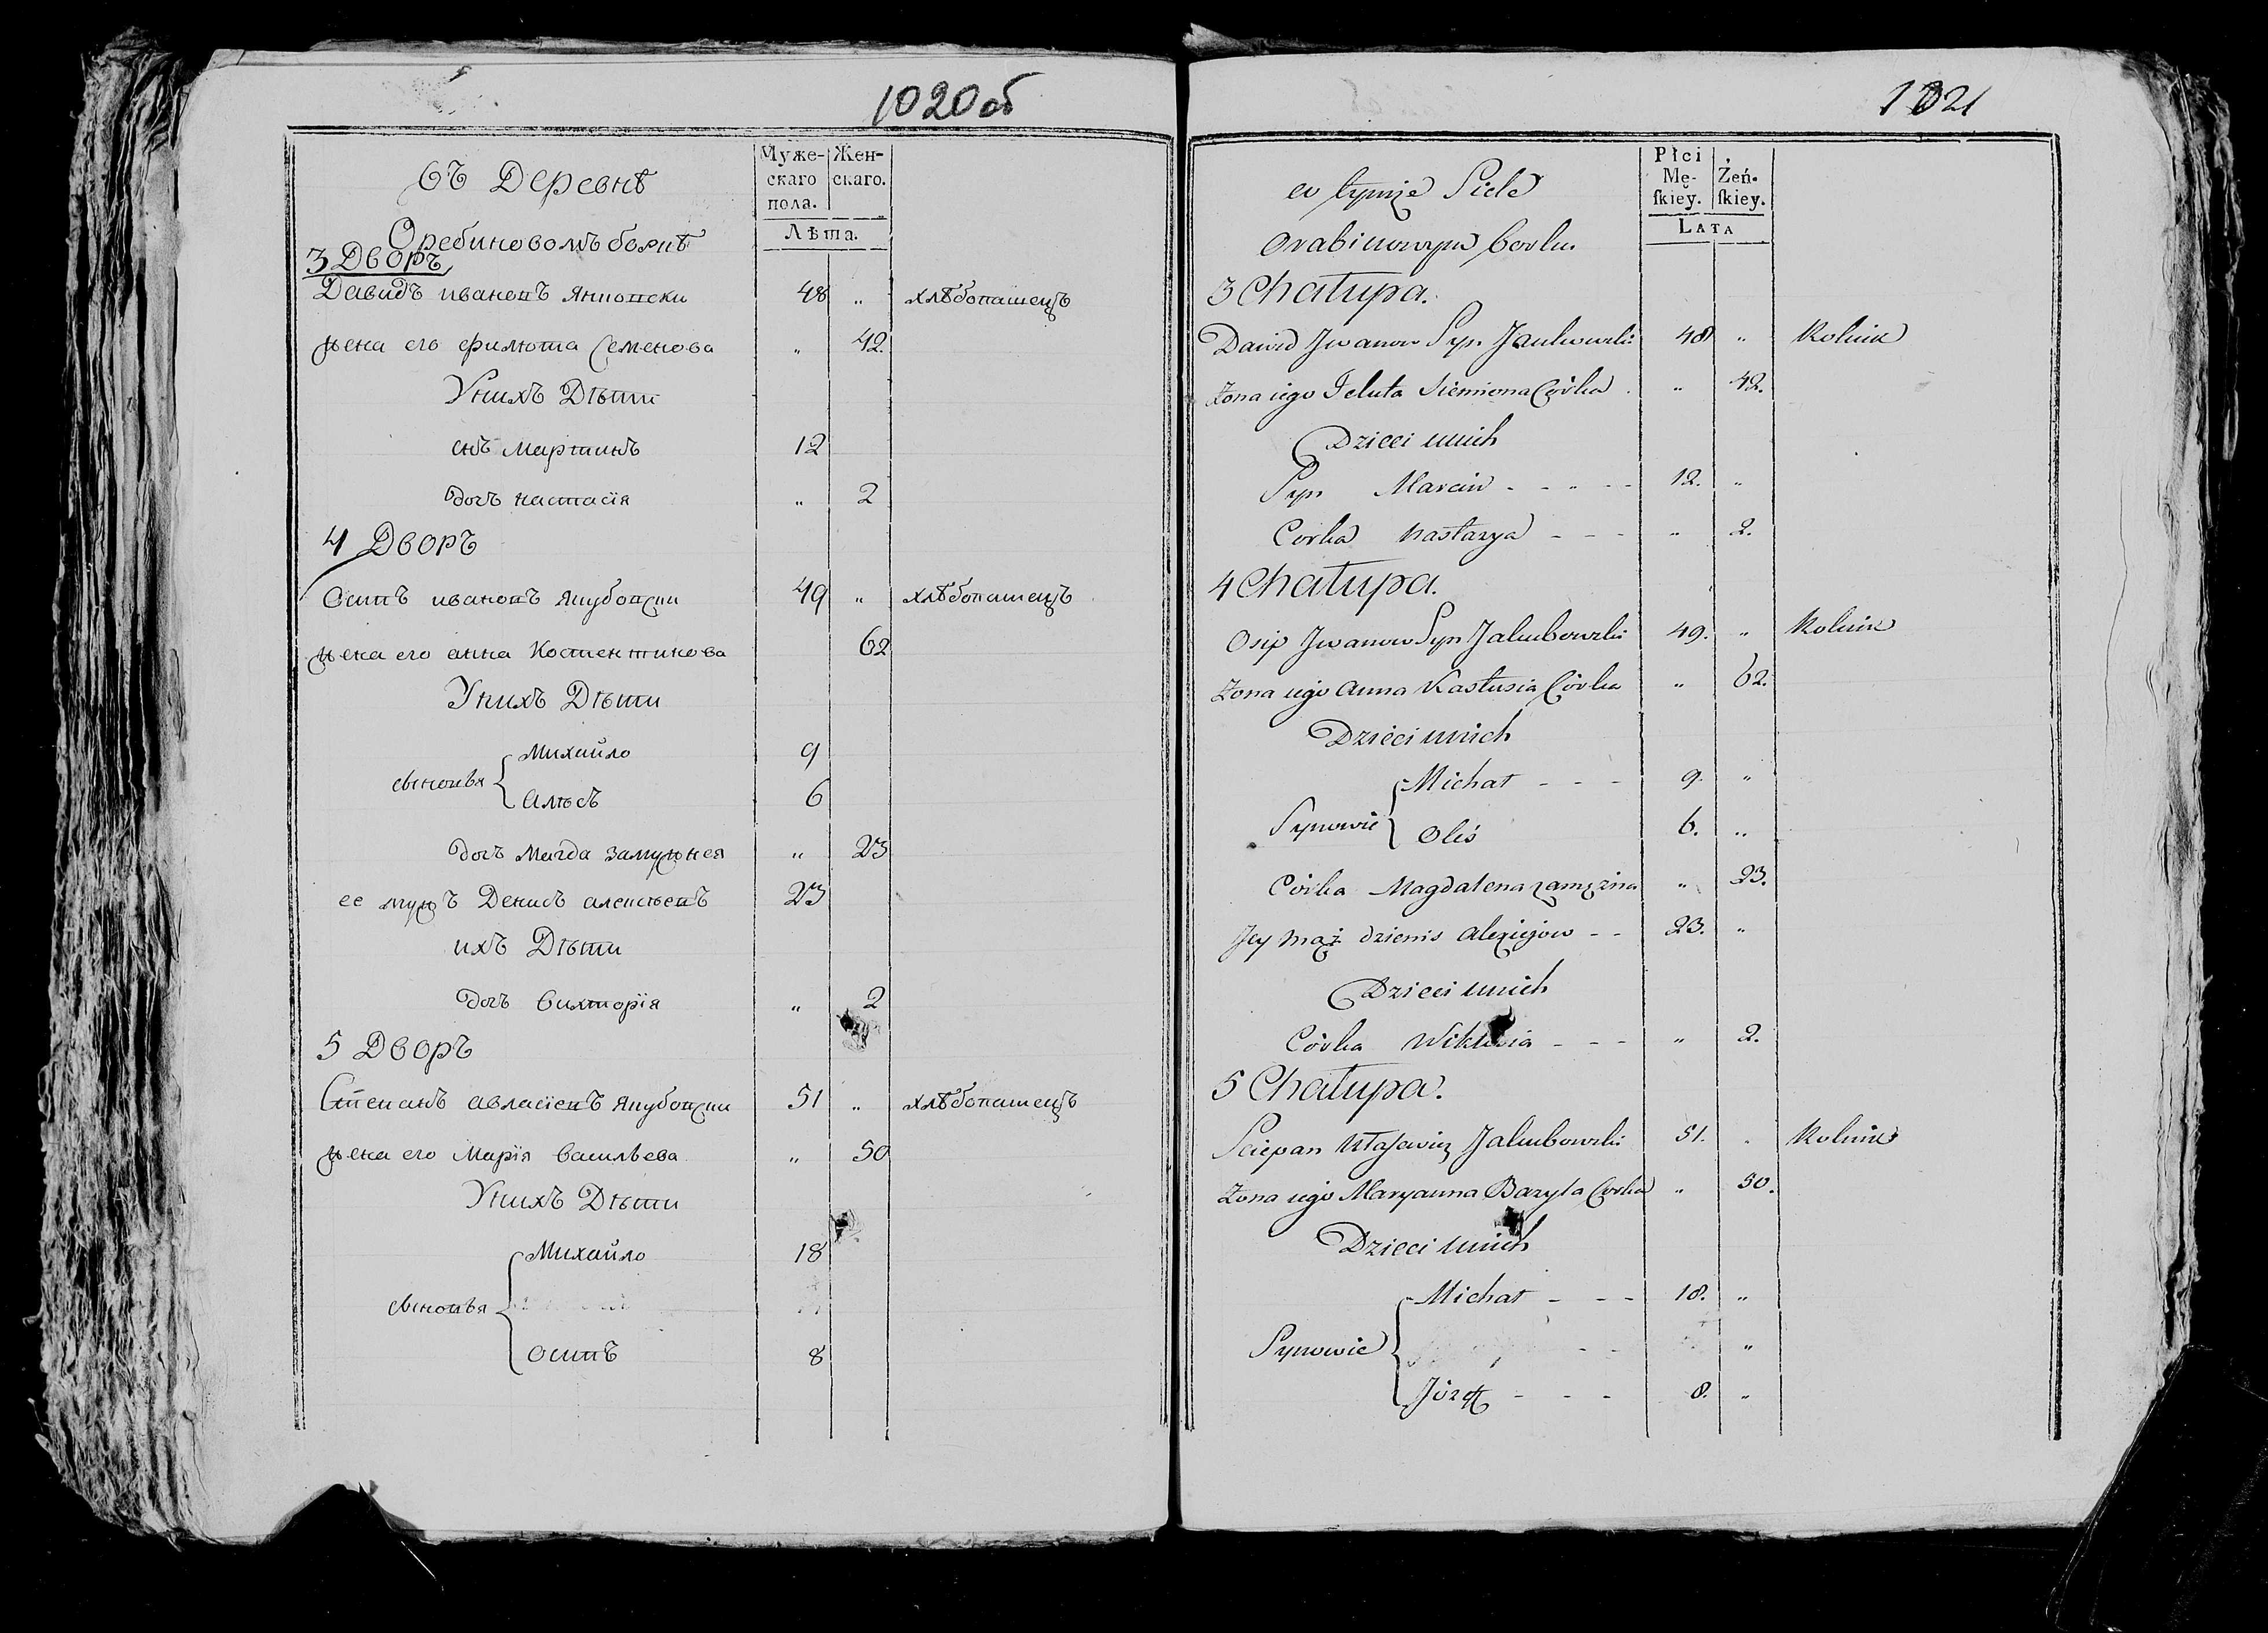 1020об
въ Деревнѣ
Оребиновомъ боркѣ
Муже- Жен-
скаго скаго.
пола.
Лѣта.
3 Дворъ
Давидъ ивановъ 48 „ хлѣбопашецъ
жена его Семенова „ 42
Унихъ Дѣти
снъ мартинъ 12
дочъ настасія „ 2
4 Дворъ
Осипъ ивановъ якубовски 49 „ хлѣбопашецъ
жена его анна Костентинова 62
Унихъ Дѣти
Михайло 9
сыновья
Алѣсъ 6
дочъ Магда замужнея „ 23
ее мужъ Денисъ алексѣевъ 23
ихъ Дѣти
дочъ викторія „ 2
5 Дворъ
Степанъ авласіевъ якубовски 51 „ хлѣбопашецъ
жена его Марія васильева „ 50
Унихъ Дѣти
Михайло 18
сыновья
осипъ 8
1021
w tymże Siele
Orabinowym borku
Płci
Mę- Żeń-
ſkiey. ſkiey.
LATA
3 Chałupa.
Dawid Jwanow Syn 48 „ Rolnik
Żona iego Siemiona Córka „ 42.
Dzieci unich
Syn Marcin - - - - 12. „
Corka Nastazya - - - „ 2.
4 Chałupa.
Osip Jwanow Syn Jakubowski 49. „ Rolnik
Żona iego Anna Kastusia Córka „ 62.
Dzieci unich
Michał - - - 9. „
Synowie
Oleś 6. „
Córka Magdalena zamężna „ 23.
Jey mąż dzienis Alexiejow - - 23. „
Dzieci unich
Córka - - - „ 2.
5 Chałupa.
Sciepan Jakubowski 51. „ Rolnik
Żona iego Maryanna Bazyla Corka „ 50.
Dzieci unich
Michał - - - 18. „
Synowie
- - „
Józef - - - 8. „